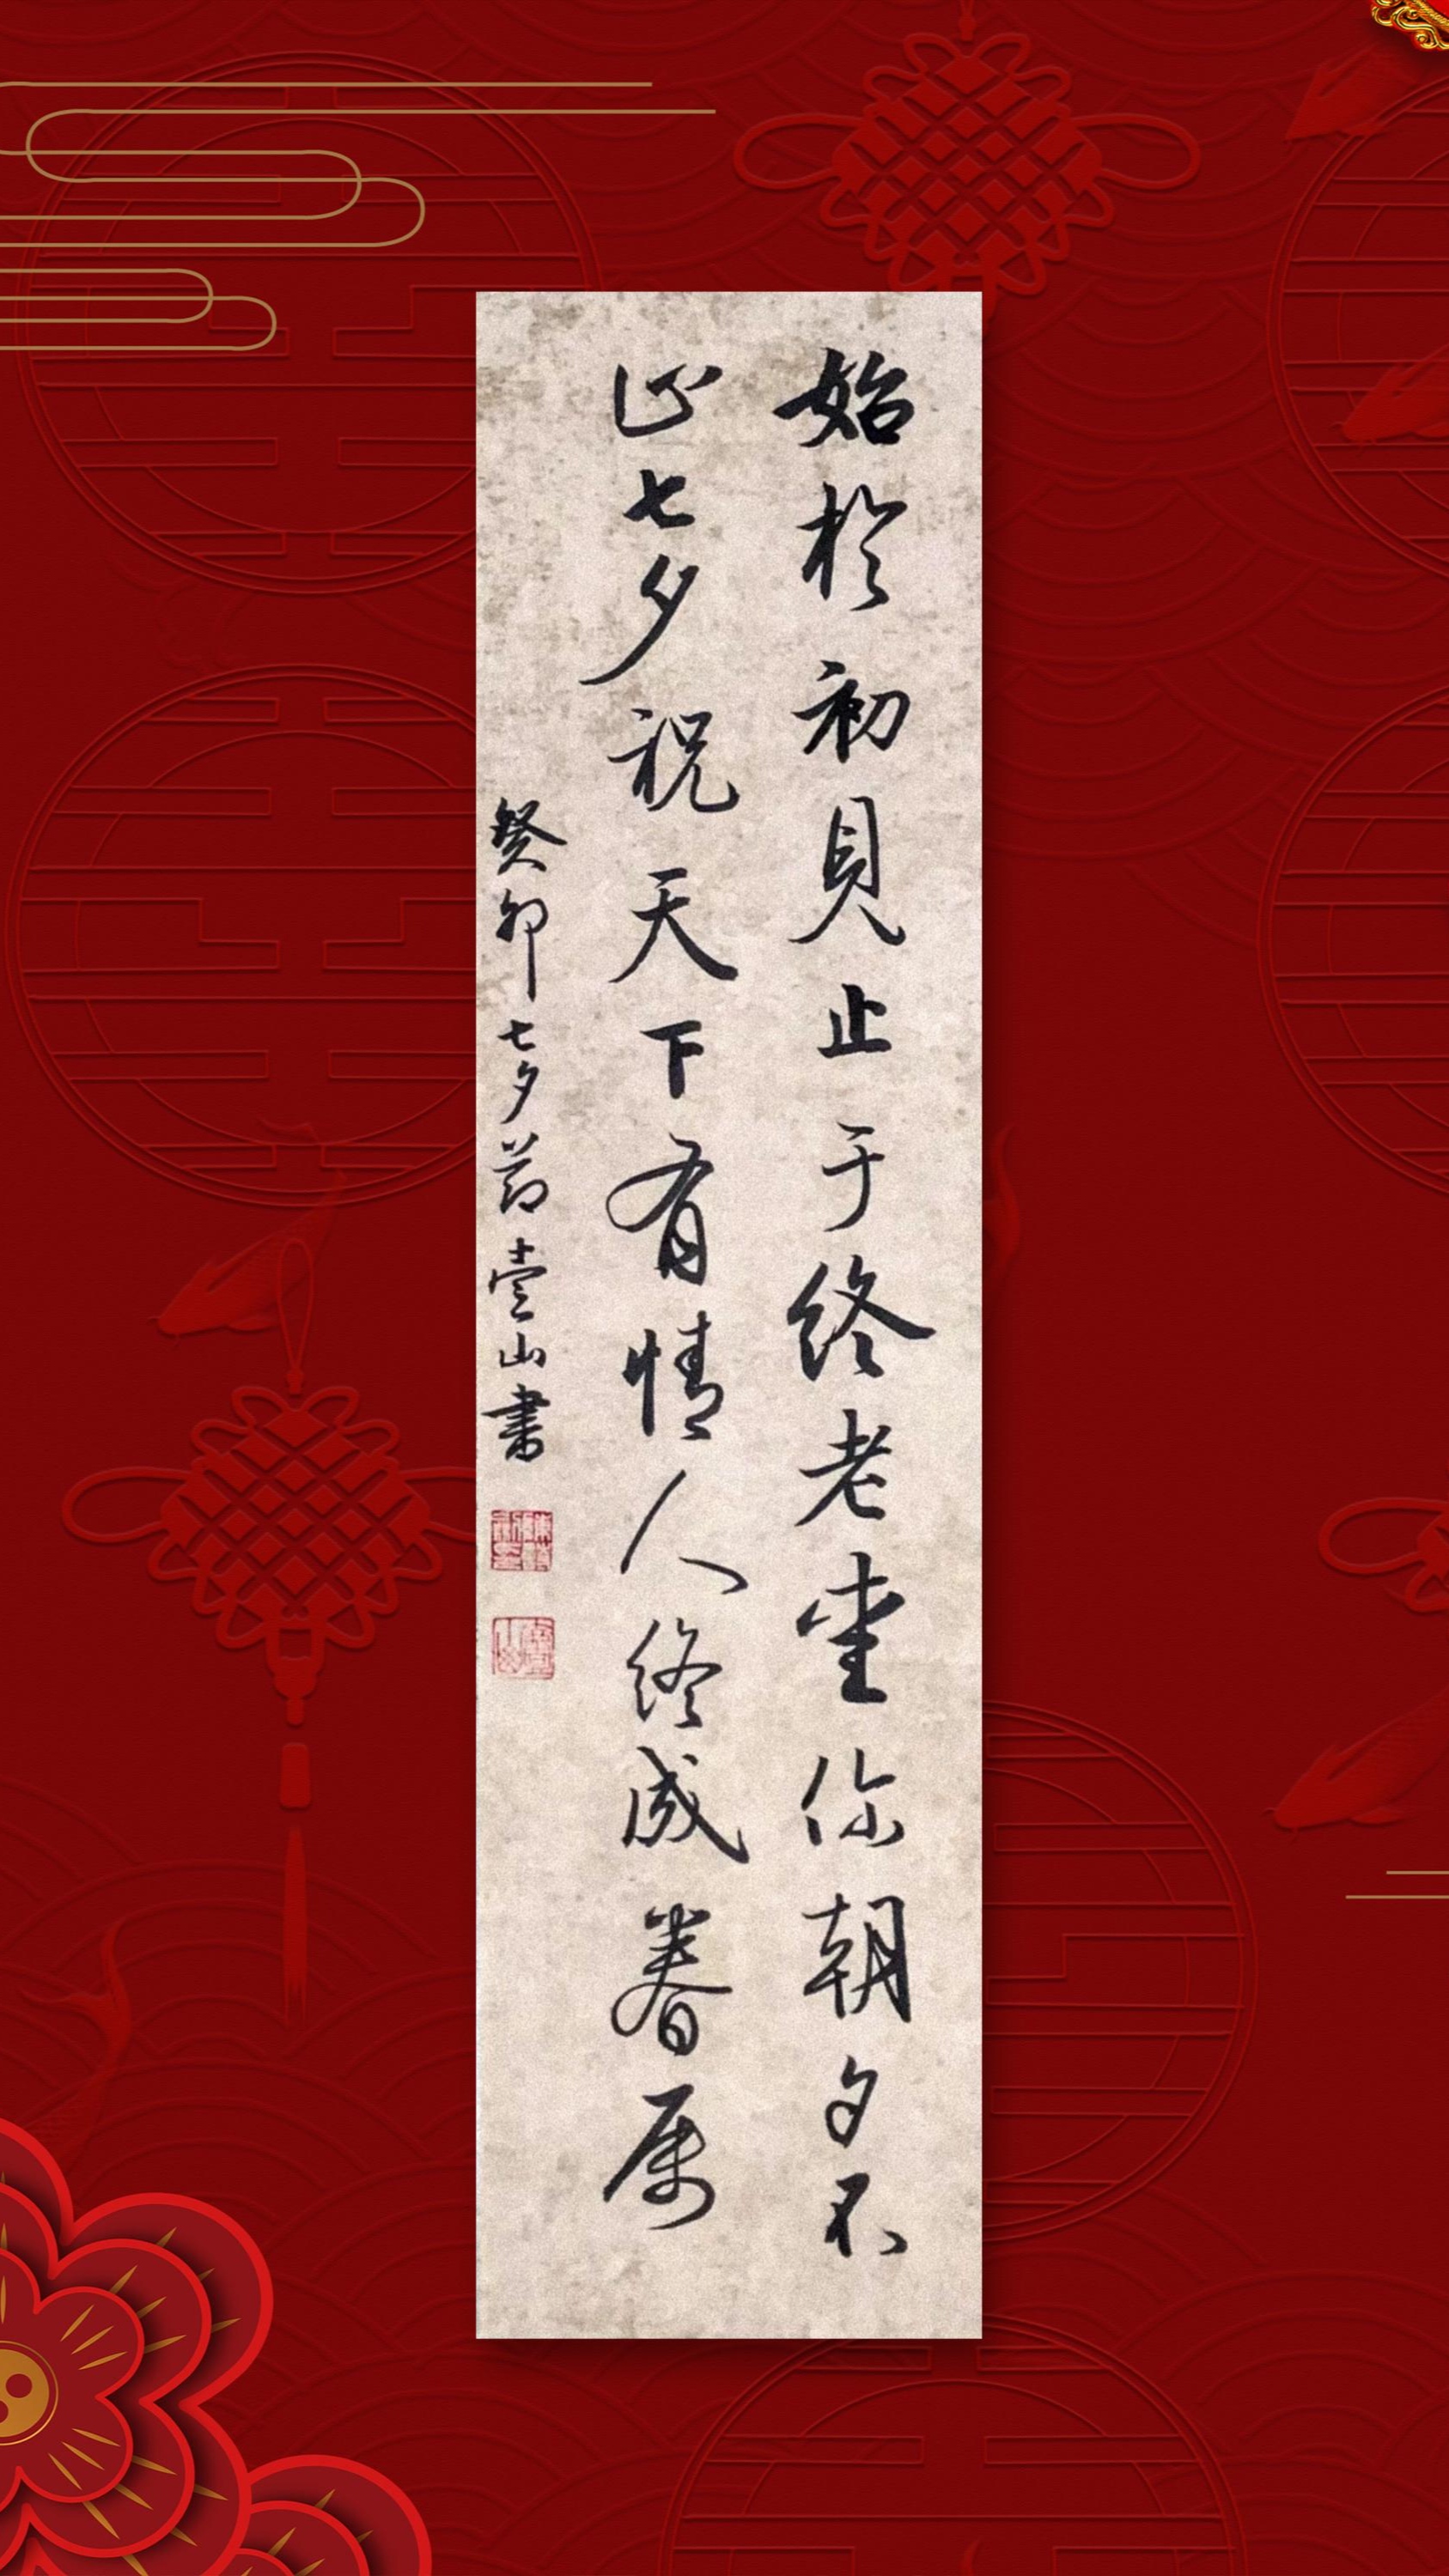 始於初見止于終老愛你朝夕不
止七夕祝天下有情人終成眷属
癸卯七夕節壹山書